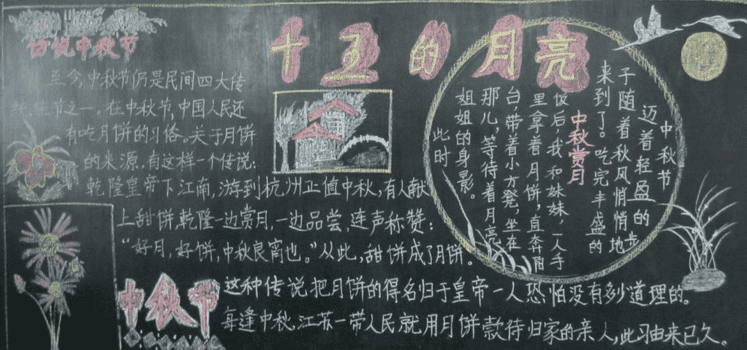 古说中秋节
十五的月亮
至今,中秋节仍是民间四大传
统佳节之一。在中秋节,中国人民还
有吃月饼的习俗。关于月饼
的来源,有这样一个传说:
乾隆皇帝下江南,游到杭州正值中秋,有人献
上甜饼,乾隆一边赏月,一边品尝,连声称赞:
“好月,好饼,中秋良宵也。”从此,甜饼成了月饼。
中秋节
这种传说把月饼的得名归于皇帝一人,恐怕没有多少道理的。
每逢中秋,江苏一带人民就用月饼款待归家的亲人,此习由来已久。
中秋节
迈着轻盈的步
子随着秋风悄悄地
来到了。吃完丰盛的
中秋赏月
饭后,我和妹妹,一人手
里拿着月饼,直奔阳
台,带着小方凳,坐在
那儿,等待着月亮
姐姐的身影。
此时